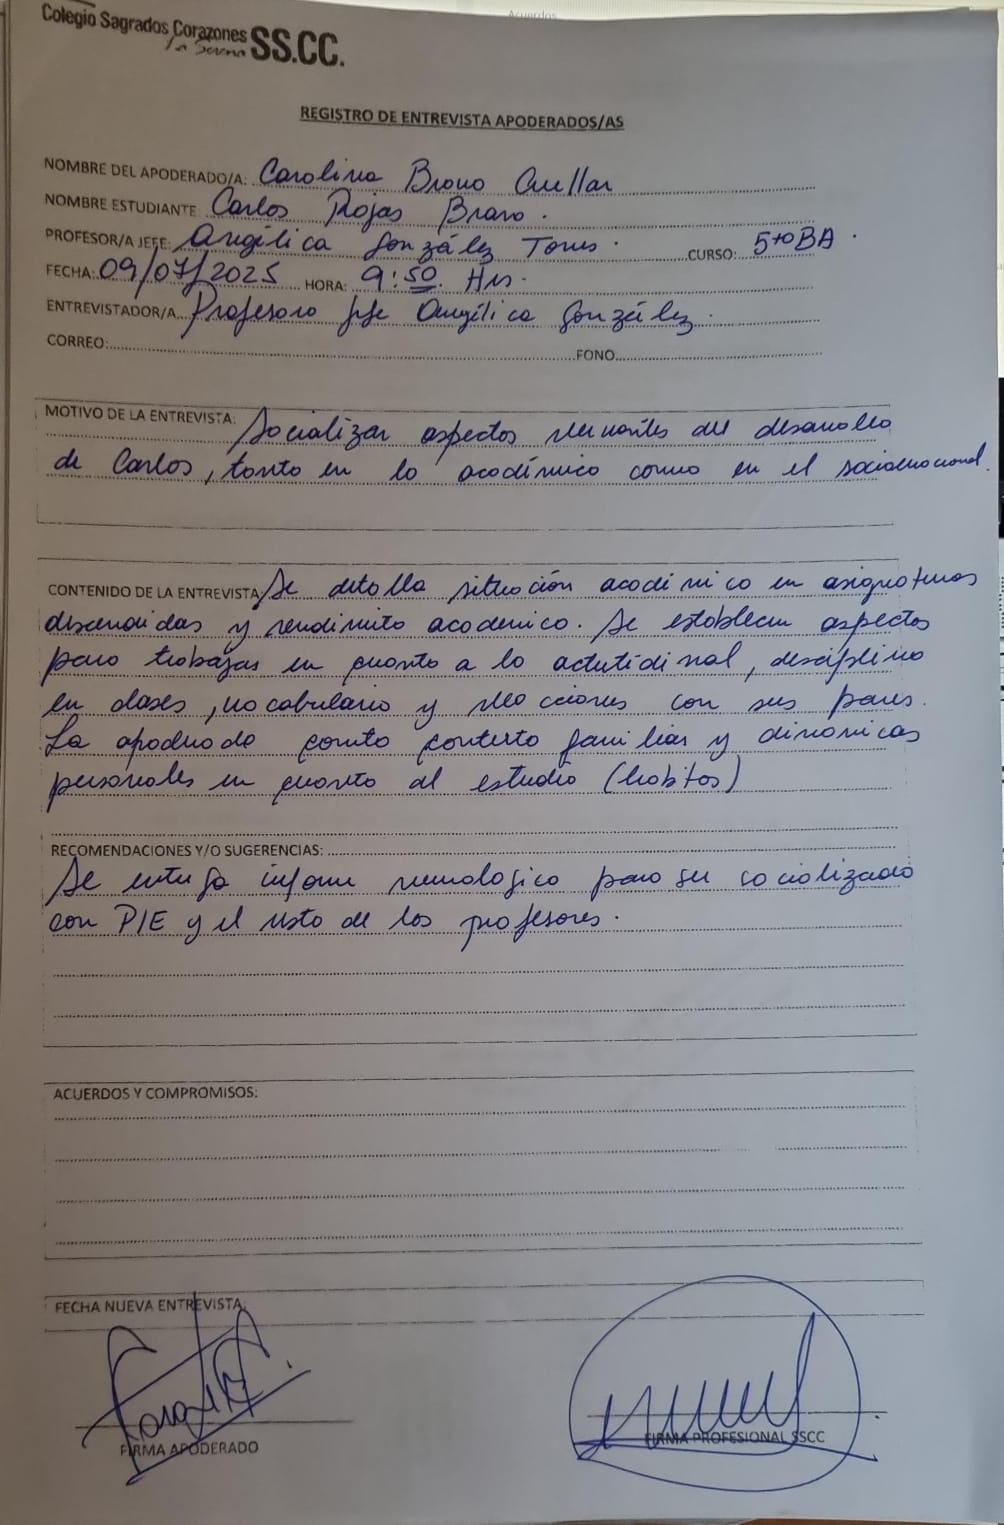 Acuerdos
Colegio Sagrados Corazones
La Serena SS.CC.
REGISTRO DE ENTREVISTA APODERADOS/AS
NOMBRE DEL APODERADO/A: Carolina Bravo Cuellar
NOMBRE ESTUDIANTE Carlos Rojas Bravo.
PROFESOR/A JEFE: Angélica González Torres. CURSO: 5to BA.
FECHA: 09/07/2025 HORA: 9:50 Hrs.
ENTREVISTADOR/A Profesora Jefe Angélica González.
CORREO: FONO
MOTIVO DE LA ENTREVISTA: Socializar aspectos relevantes del desarrollo
de Carlos, tanto en lo académico como en el socioemocional.
CONTENIDO DE LA ENTREVISTA Se detalla situación académica en asignaturas
descendidas y rendimito académico. Se establecen aspectos
para trabajar en cuanto a lo actitudinal, disciplina
en clases, vocabulario y relaciones con sus pares.
La apoderada comta contexto familiar y dinámicas
personales en cuanto al estudio (hábitos)
RECOMENDACIONES Y/O SUGERENCIAS:
Se entrega informe neurologico para ser socializado
con PIE y el resto de los profesores.
ACUERDOS Y COMPROMISOS:
FECHA NUEVA ENTREVISTA:
FIRMA APODERADO FIRMA PROFESIONAL SSCC